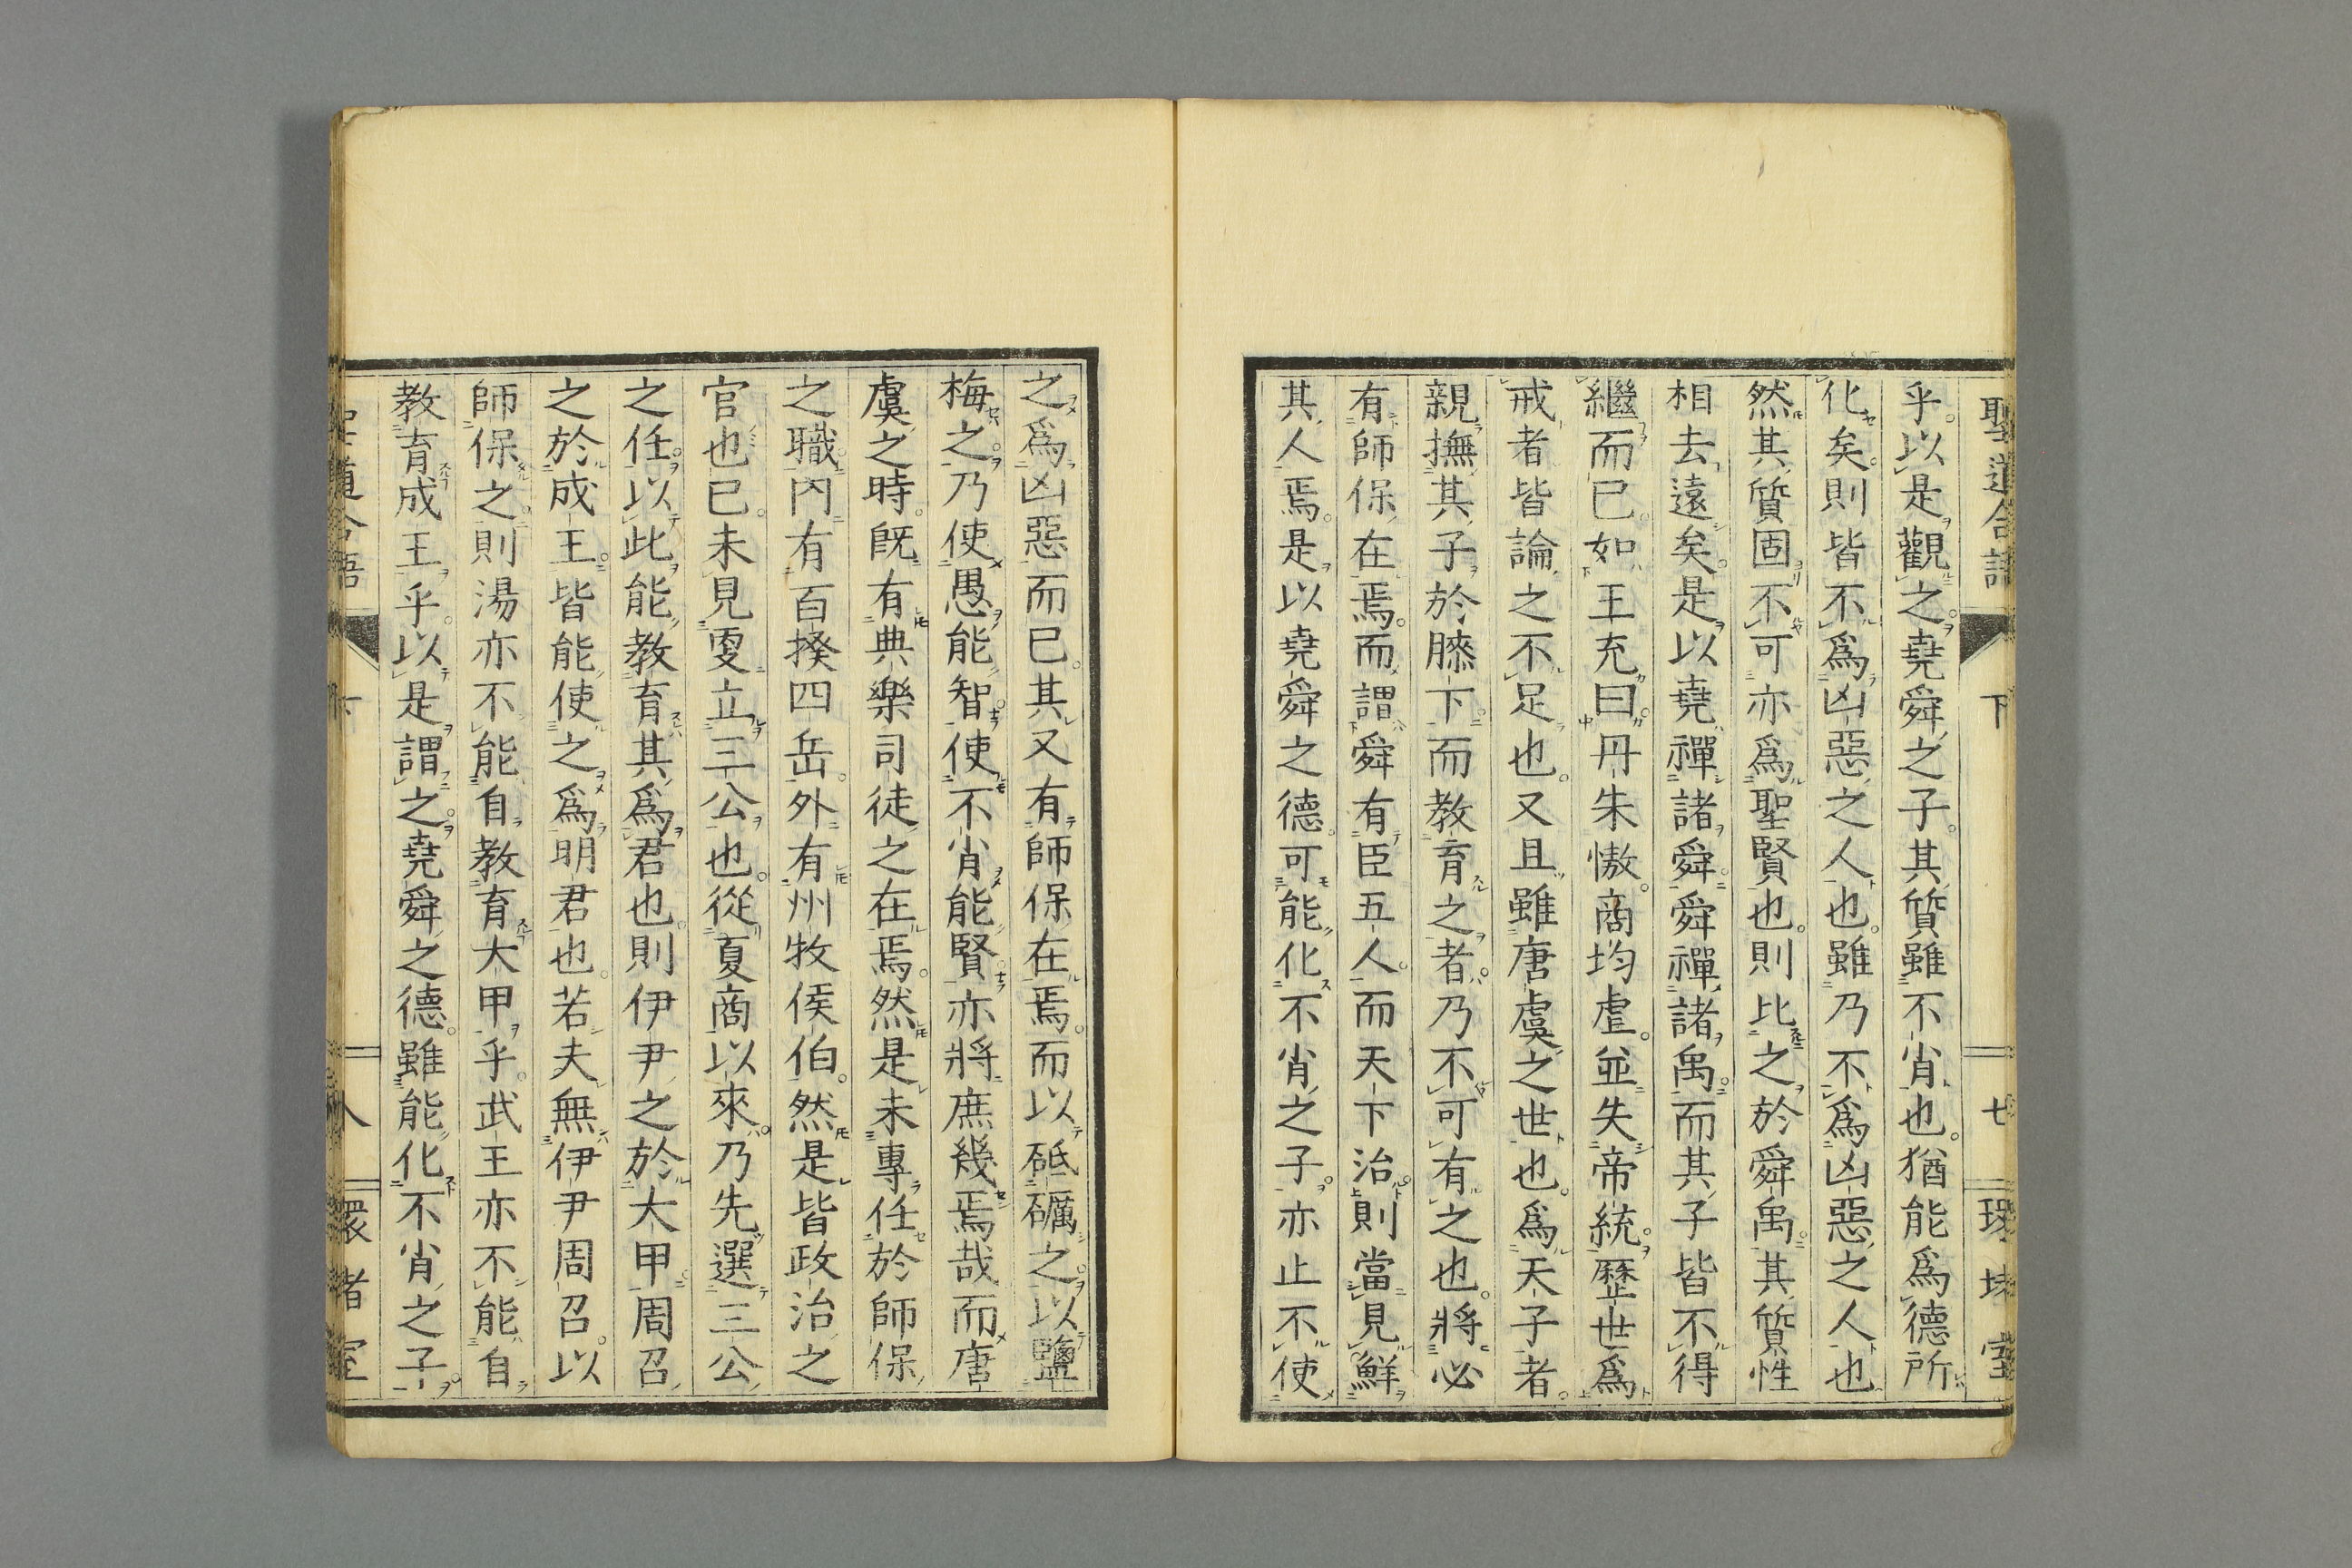 聖道合語 下 七 環堵室
乎以是觀之堯舜之子其質雖不肖也猶能爲德所
化矣則皆不爲凶惡之人也雖乃不爲凶惡之人也
然其質固不可亦爲聖賢也則比之於舜禹其質性
相去遠矣是以堯禪諸舜舜禪諸禹而其子皆不得
繼而已如王充曰丹朱慠商均虐並失帝統歷世爲
戒者皆論之不足也又且雖唐虞之世也爲天子者
親撫其子於膝下而教育之者乃不可有之也將必
有師保在焉而謂舜有臣五人而天下治則當見鮮
其人焉是以堯舜之德可能化不肖之子亦止不使
之爲凶惡而已其又有師保在焉而以砥礪之以鹽
梅之乃使愚能智使不肖能賢亦將庶幾焉哉而唐
虞之時既有典樂司徒之在焉然是未專任於師保
之職內有百揆四岳外有州牧侯伯然是皆政治之
官也已未見夏立三公也從夏商以來乃先選三公
之任以此能教育其爲君也則伊尹之於大甲周召
之於成王皆能使之爲明君也若夫無伊尹周召以
師保之則湯亦不能自教育大甲乎武王亦不能自
教育成王乎以是謂之堯舜之德雖能化不肖之子
聖道合語 下 八 環堵室